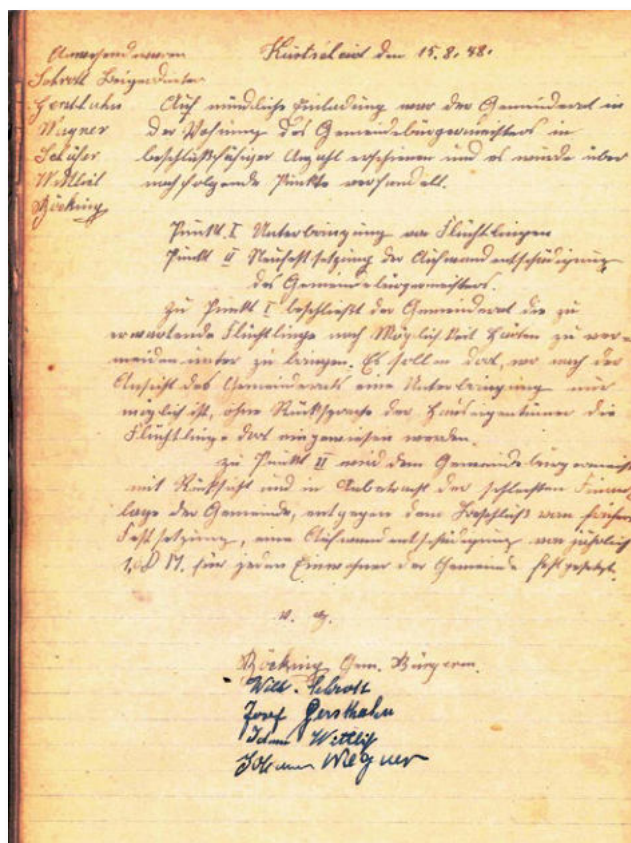 Anwesend waren
Schrott Beigeordneter
Gerhahn
Wagner
Schäfer
Wittlich
Böcking
den 15.8.48.
Auf mündliche Einladung war der Gemeinderat in
der Wohnung des Gemeindebürgermeisters in
beschlußfähiger Anzahl erschienen und es wurde über
nachfolgende Punkte verhandelt.
Punkt I Unterbringung von Flüchtlingen
Punkt II Neufestsetzung der Aufwandentschädigung
des Gemeindebürgermeisters.
Zu Punkt I beschließt der Gemeinderat die zu
erwartende Flüchtlinge nach Möglichkeit Härten zu ver-
meiden unter zu bringen. Es sollen dort, wo nach der
Ansicht des Gemeinderats eine Unterbringung nur
möglich ist, ohne Rücksprache der Hauseigentümer die
Flüchtlinge dort eingewiesen werden.
Zu Punkt II wird dem Gemeindebürgermeist
mit Rücksicht und in Anbetracht der schlechten Finanz
lage der Gemeinde, entgegen dem Beschluß vom
Festsetzung, eine Aufwandentschädigung von jährlich
M. für jeden Einwohner der Gemeinde festgesetzt.
v. g.
Böcking Gem. Bürgerm.
Wilh. Schrott
Josef
Johann Wittlich
Johann Wagner